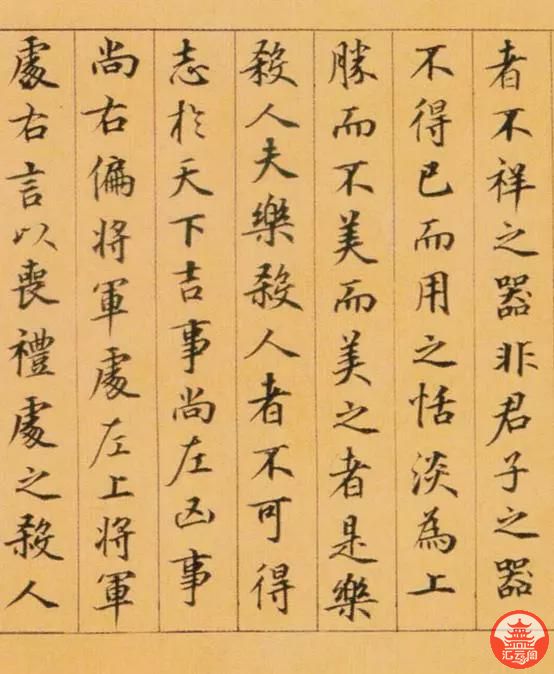 者不祥之器非君子之器
不得已而用之恬淡為上
勝而不美而美之者是樂
殺人夫樂殺人者不可得
志於天下吉事尚左凶事
尚右偏将軍處左上将軍
處右言以喪禮處之殺人
汇云阁